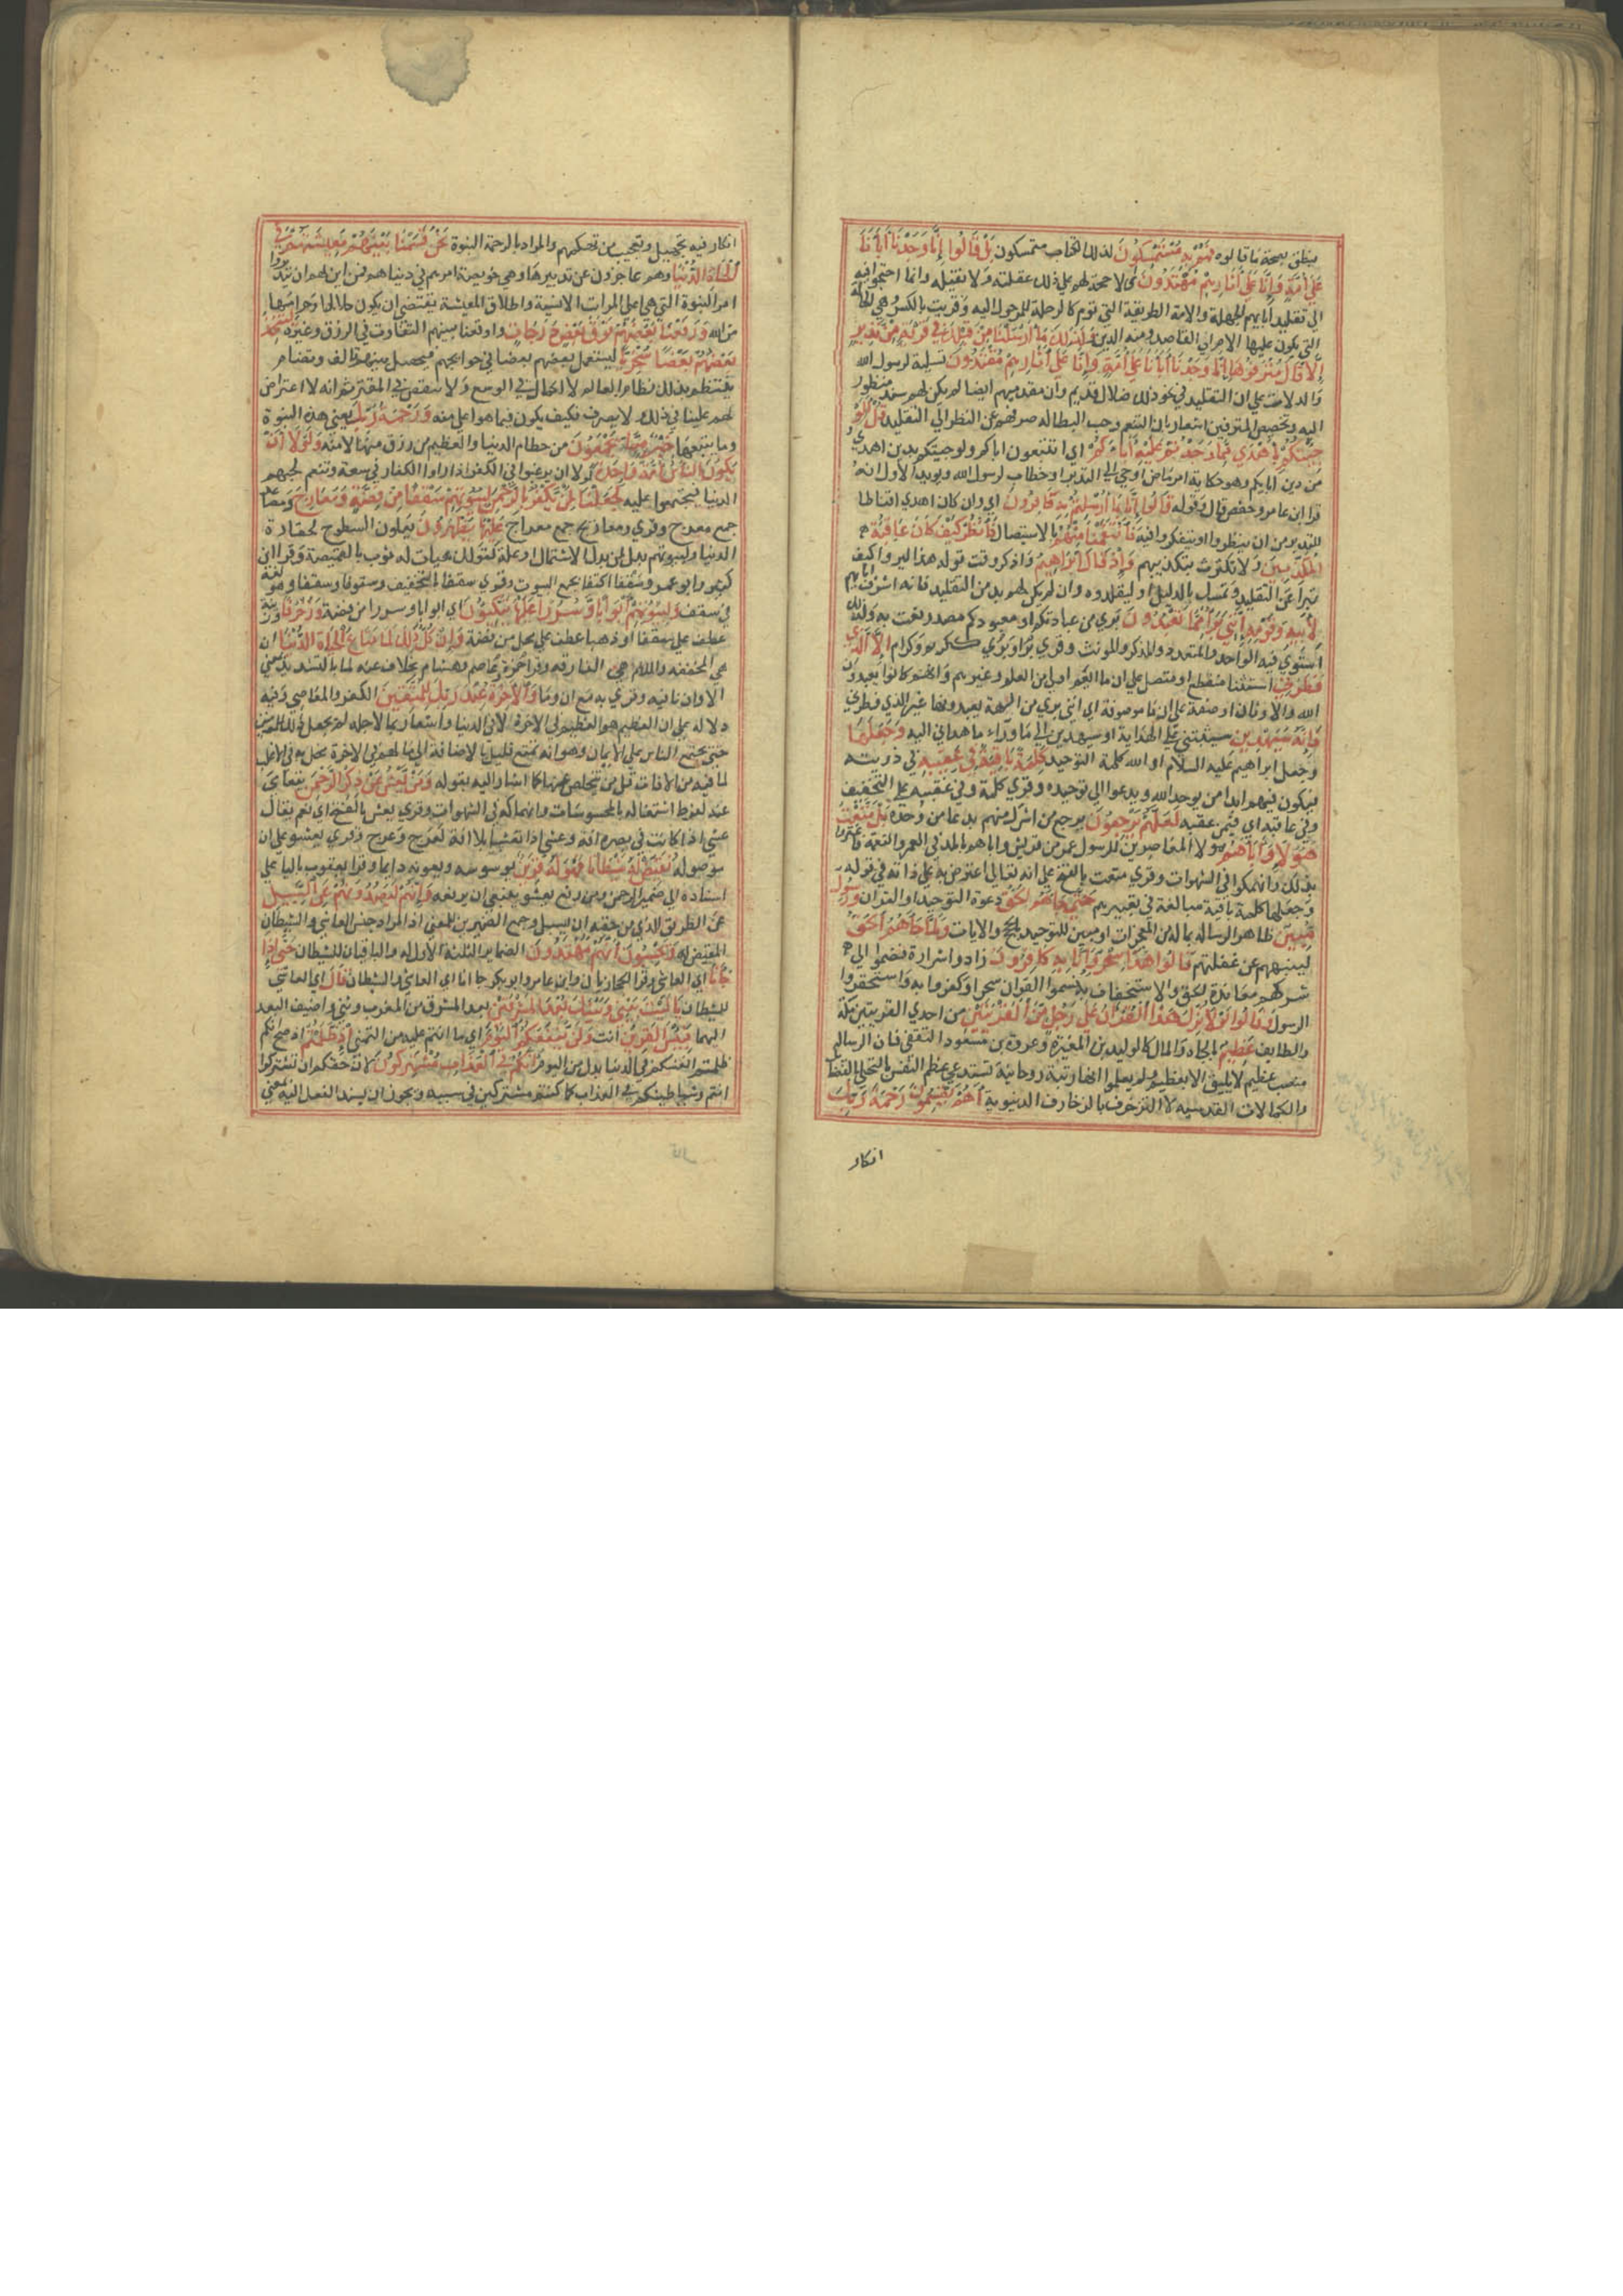 ينطق بصحة ما قالوه فهم به مستمسكون لذلك الكتاب متمسكون بل قالوا انا وجدنا آباءنا
على امة وانا على آثارهم مهتدون اي لا حجة لهم على ذلك عقلية ولا نقلية وانما احتجوا فيه
الى تقليد آبائهم الجهلة والامة الطريقة التي تؤم كالرحلة للمرحول اليه وقرئت بالكسر وهي الحالة
التي يكون عليها الام اي القاصد ومنه الدين وكذلك ما ارسلنا من قبلك في قرية من نذير
الا قال مترفوها انا وجدنا آباءنا على امة وانا على آثارهم مقتدون تسلية لرسول الله
والدلالة على ان التقليد في نحو ذلك ضلال قديم وان مقدميهم ايضا لم يكن لهم سند منظور
اليه وتخصيص المترفين اشعار بان التنعم وحب البطالة صرفهم عن النظر الى التقليد قل اولو
جئتكم باهدى مما وجدتم عليه آباءكم اي اتتبعون اباكم ولو جئتكم بدين اهدى
من دين آبائكم وهو حكاية امر ماض اوحي الى النذير او خطاب لرسول الله ويؤيد الاول انه
قرأ ابن عامر وحفص قال وقوله قالوا انا بما ارسلتم به كافرون اي وان كان اهدى اقناطا
للنذير من ان ينظروا او يتفكروا فيه فانتقمنا منهم بالاستيصال فانظر كيف كان عاقبة
المكذبين ولا تكترث بتكذيبهم واذ قال ابراهيم واذكر وقت قوله هذا ليروا كيف
تبرأ عن التقليد وتمسك بالدليل او ليقلدوه وان لم يكن لهم بد من التقليد فانه اشرف آبائهم
لابيه وقومه انني براء مما تعبدون بريء من عبادتكم او معبودكم مصدر نعت به ولذلك
استوى فيه الواحد والمتعدد والمذكر والمونث وقرئ بريء وبراء ككريم وكرام الا الذي
فطرني استثنا منقطع او متصل على ان ما تعم اولي العلم وغيرهم وانهم كانوا يعبدون
الله والاوثان او صفة على ان ما موصوفة اي انني بريء من آلهة تعبدونها غير الذي فطرني
فانه سيهدين سيثبتني على الهداية او سيهدين الى ما وراء ما هداني اليه وجعلها
وجعل ابراهيم عليه السلام او الله كلمة التوحيد كلمة باقية في عقبه في ذريته
فيكون فيهم ابدا من يوحد الله ويدعوا الى توحيده وقرئ كلمة وفي عقبه على التخفيف
وفي عاقبه اي فيمن عقبه لعلهم يرجعون يرجع من اشرك منهم بدعا من وحده بل متعت
هؤلاء وآباءهم هؤلاء المعاصرين للرسول عم من قريش وآباءهم بالمد في العمر والنعمة فاغتروا
بذلك وانهمكوا في الشهوات وقرئ متعت بالفتح على انه تعالى اعترض به على ذاته في قوله
وجعلها كلمة باقية مبالغة في تعييرهم حتى جاءهم الحق دعوة التوحيد او القران ورسول
مبين ظاهر الرسالة بما له من المعجزات او مبين للتوحيد بالحجج والايات ولما جاءهم الحق
لينبههم عن غفلتهم قالوا هذا سحر وانا به كافرون زادوا شرارة فضموا الى
شركهم معاندة الحق والاستخفاف به فسموا القران سحرا وكفروا به واستحقروا
الرسول وقالوا لولا نزل هذا القران على رجل من القريتين من احدي القريتين مكة
والطايف عظيم بالجاه والمال كالوليد بن المغيرة وعروة بن مسعود الثقفي فان الرسالة
منصب عظيم لا يليق الا بعظيم ولم يعلموا انها رتبة روحانية تستدعي عظم النفس بالتحلي بالفضايل
والكمالات القدسية لا التزخرف بالزخارف الدنيوية اهم يقسمون رحمة ربك
انكار
انكار فيه تجهيل وتعجيب من تحكمهم والمراد بالرحمة النبوة نحن قسمنا بينهم معيشتهم في
الحياة الدنيا وهم عاجزون عن تدبيرها وهي خويصة امرهم في دنياهم فمن اين لهم ان يتدبروا
امر النبوة التي هي اعلى المراتب الانسية واطلاق المعيشة يقتضي ان يكون حلالها وحرامها
من الله ورفعنا بعضهم فوق بعض درجات واوقعنا بينهم التفاوت في الرزق وغيره ليتخذ
بعضهم بعضا سخريا ليستعمل بعضهم بعضا في حوايجهم فيحصل بينهم تالف وتضام
ينتظم بذلك نظام العالم لا لكمال في الموسع ولا لنقص في المقتر ثم انه لا اعتراض
لهم علينا في ذلك ولا تصرف فكيف يكون فيما هو اعلى منه ورحمة ربك يعني هذه النبوة
وما يتبعها خير مما يجمعون من حطام الدنيا والعظيم من رزق منها لا منه ولولا ان
يكون الناس امة واحدة لولا ان يرغبوا في الكفر اذا راوا الكفار في سعة وتنعم لحبهم
الدنيا فيجتمعوا عليه لجعلنا لمن يكفر بالرحمن لبيوتهم سقفا من فضة ومعارج ومصاعد
جمع معرج وقرئ ومعاريج جمع معراج عليها يظهرون يعلون السطوح لحقارة
الدنيا ولبيوتهم بدل من بدل الاشتمال او علة كقولك هيأت له ثوبا لقميصه وقرا ابن
كثير وابو عمرو وسقفا اكتفا بجمع البيوت وقرئ سقفا بالتخفيف وسقوفا وسقفا وهو لغة
في سقف ولبيوتهم ابوابا وسررا عليها يتكئون اي ابوابا وسررا من فضة وزخرفا وزينة
عطف على سقفا او ذهبا عطف على محل من فضة وان كل ذلك لما متاع الحياة الدنيا ان
هي المخففة واللام هي الفارقة وقرا حمزة وعاصم وهشام بخلاف عنه لما بالتشديد بمعنى
الا وان نافية وقرئ به مع ان وما والاخرة عند ربك للمتقين الكفر والمعاصي وفيه
دلالة على ان العظيم هو العظيم في الاخرة لا في الدنيا واشعار بما لاجله لم يجعل ذلك للمومنين
حتى يجتمع الناس على الايمان وهو انه تمتع قليل بالاضافة الى ما لهم في الاخرة مخل به في الاغلب
لما فيه من الافات قل من يتخلص عنها كما اشار اليه بقوله ومن يعش عن ذكر الرحمن يتعامى
عنه لفرط اشتغاله بالمحسوسات وانهماكه في الشهوات وقرئ يعش بالفتح اي يعم يقال
عشي اذا كانت في بصره افة وعشى اذا تعشى بلا افة كعرج وعرج وقرئ يعشو على ان
من موصولة نقيض له شيطانا فهو له قرين يوسوسه ويغويه دايما وقرا يعقوب باليا على
اسناده الى ضمير الرحمن ومن رفع يعشو ينبغي ان يرفعه وانهم ليصدونهم عن السبيل
عن الطريق الذي من حقه ان يسبل وجمع الضميرين للمعنى اذ المراد جنس العاشي والشيطان
المقيض له ويحسبون انهم مهتدون الضماير الثلثة الاول له والباقيان للشيطان حتى اذا
جاءنا اي العاشي وقرا الحجازيان وابن عامر وابو بكر جاءانا اي العاشي والشيطان قال اي العاشي
للشيطان يا ليت بيني وبينك بعد المشرقين بعد المشرق من المغرب وثني واضيف البعد
اليهما فبئس القرين انت ولن ينفعكم اليوم اي ما انتم عليه من التمني اذ ظلمتم اذ صح انكم
ظلمتم انفسكم في الدنيا بدل من اليوم انكم في العذاب مشتركون لان حقكم ان تشتركوا
انتم وشياطينكم في العذاب كما كنتم مشتركين في سببه ويجوز ان يسند الفعل اليه بمعنى